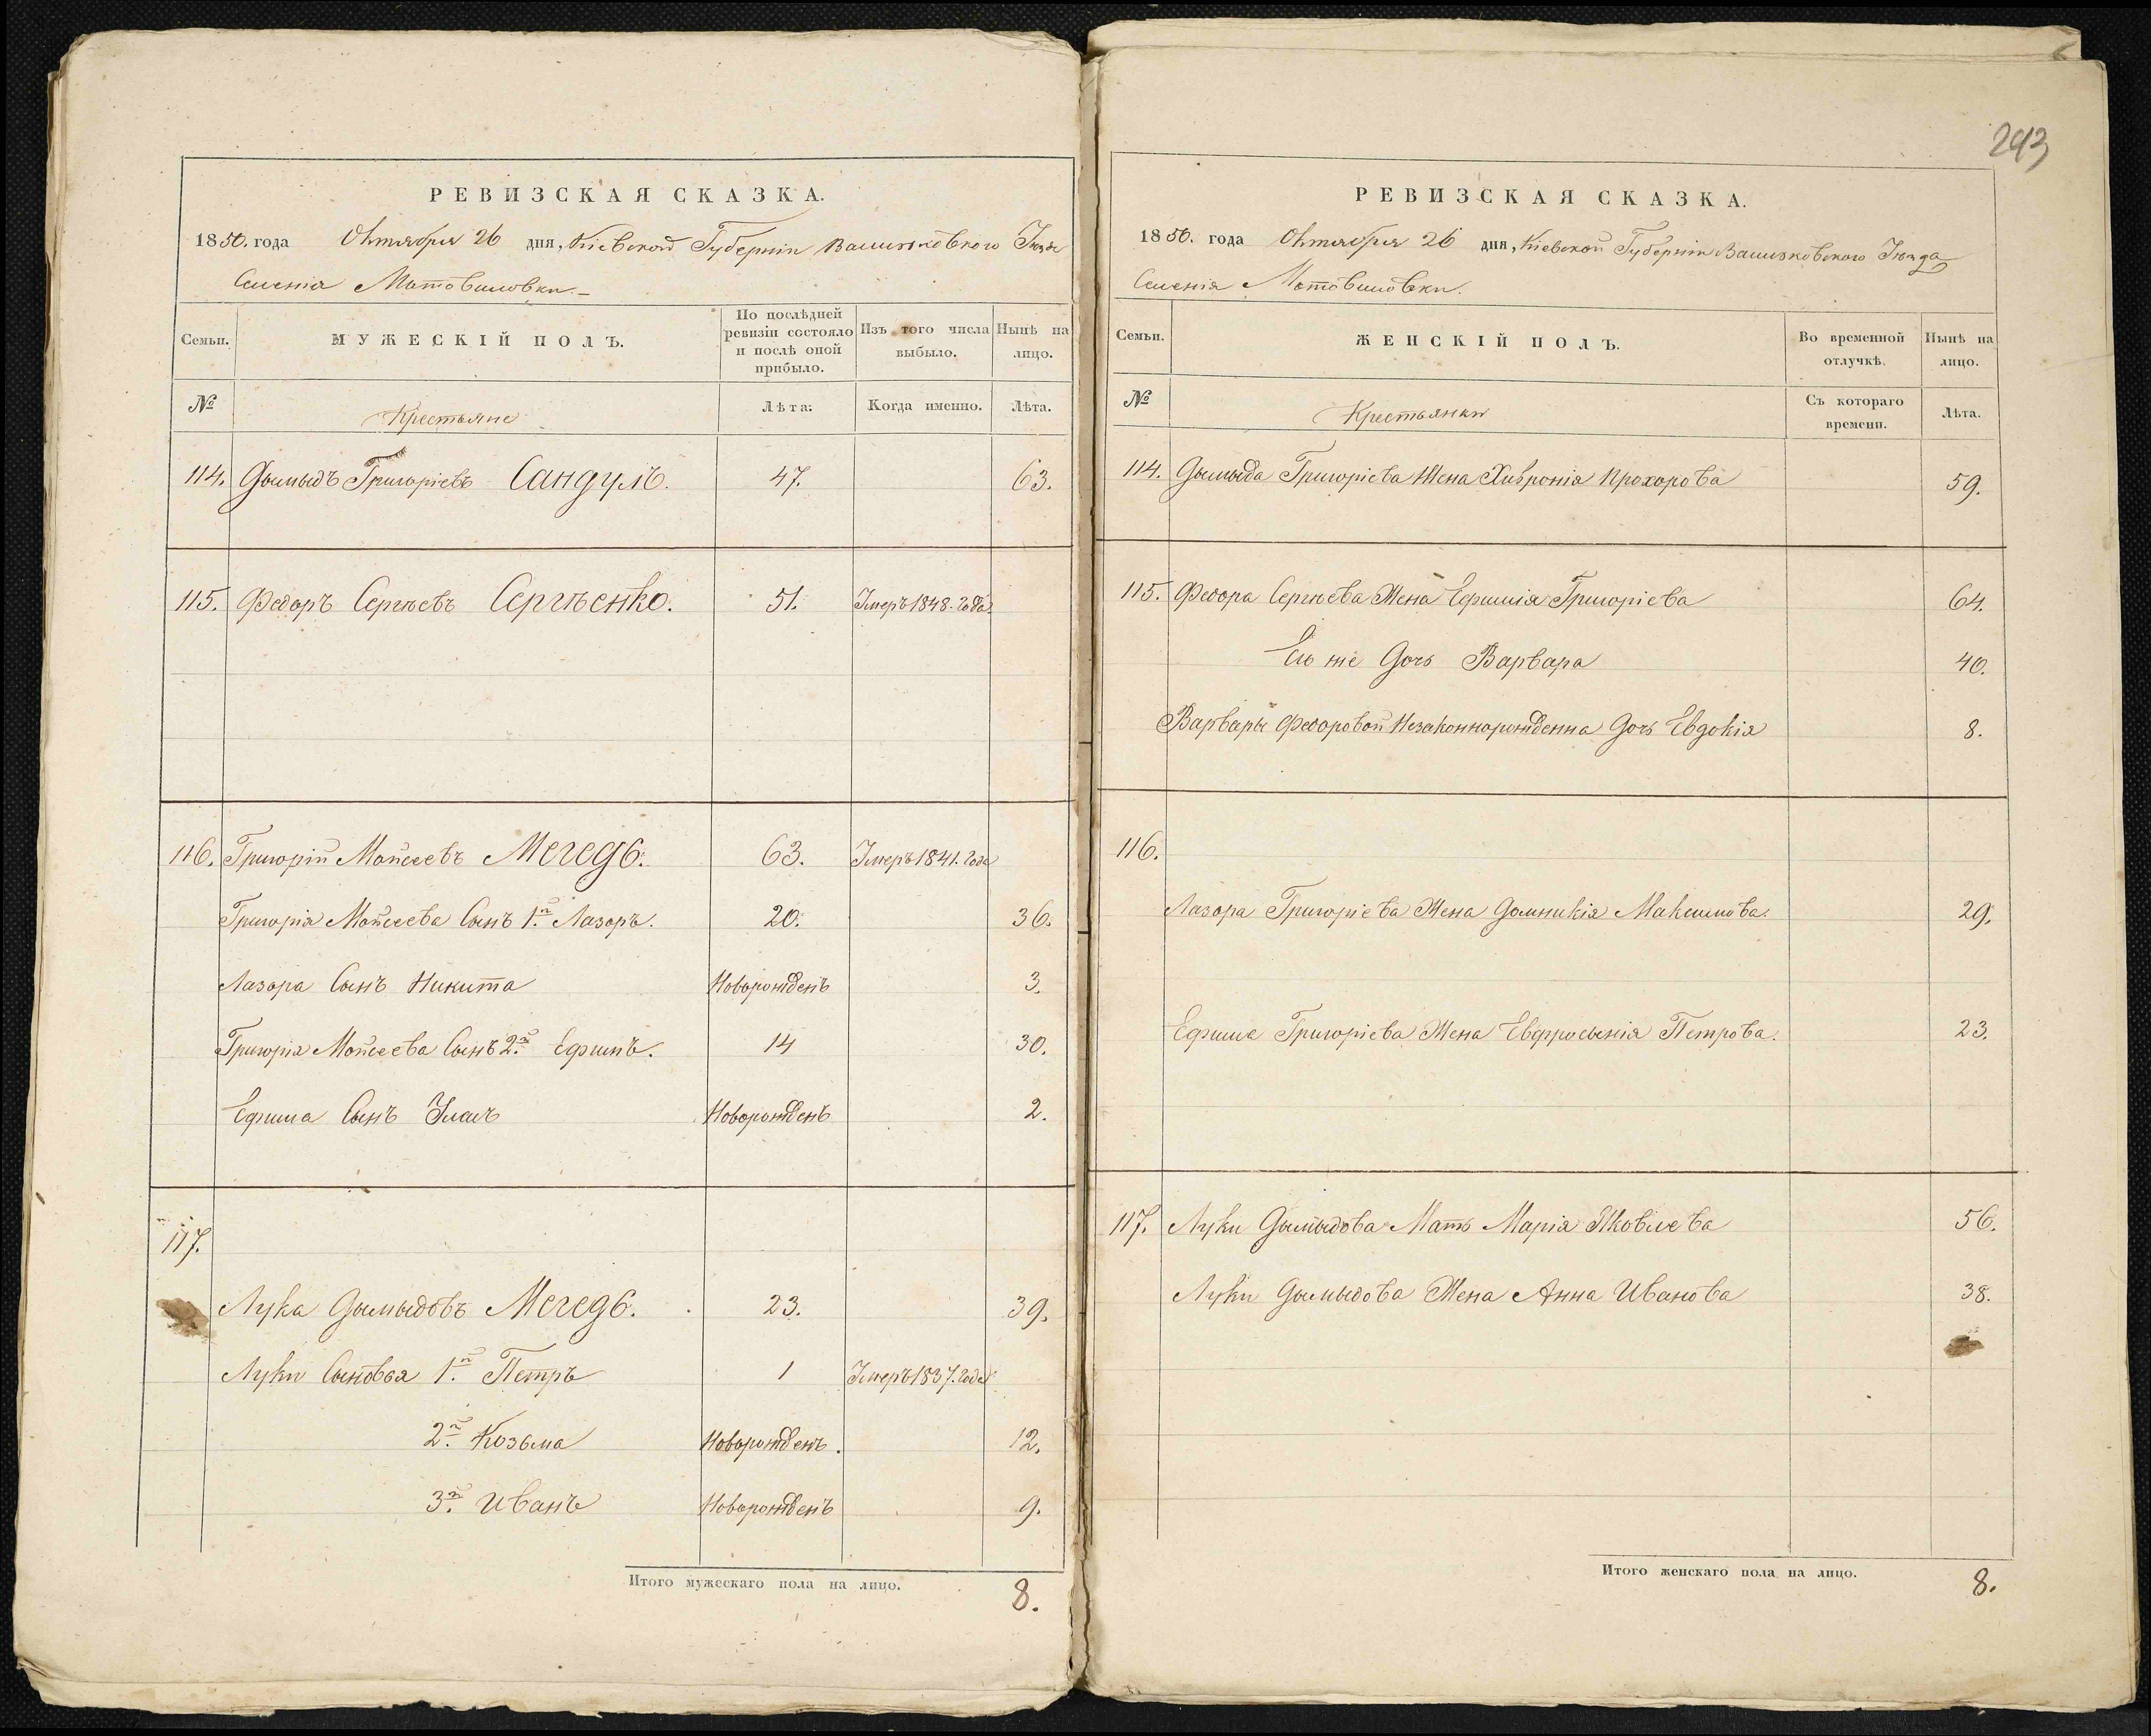 293
РЕВИЗСКАЯ СКАЗКА.
1850. года Октября 26 дня, Кіевской Губерніи Васильковского Уезда
Селенія Мотовиловки.
Семьи. МУЖЕСКІЙ ПОЛЪ. По послѣдней ревизіи состояло и послѣ оной прибыло. Изъ того числа выбыло. Нынѣ на лицо.
№ Крестьяне Лѣта: Когда именно. Лѣта.
114. Дымыдъ Григоріевъ Сандулъ. 47. 63.
115. Федоръ Сергѣевъ Сергѣенко. 51. Умеръ 1848. года
116. Григорій Мойсеевъ Мегедь. 63. Умеръ 1841. года
Григорія Мойсеева Сынъ 1й Лазоръ. 20. 36.
Лазора Сынъ Никита Новорожденъ 3.
Григорія Мойсеева Сынъ 2й Ефимъ. 14 30.
Ефима Сынъ Новорожденъ 2.
117.
Лука Дымыдовъ Мегедь. 23. 39.
Луки Сыновья 1й Петръ 1 Умеръ 1837. года
2й Козьма Новорожденъ. 12.
3й Иванъ Новорожденъ 9.
Итого мужескаго пола на лицо. 8.
РЕВИЗСКАЯ СКАЗКА.
1850. года Октября 26 дня, Кіевской Губерніи Васильковского Уезда
Селенія Мотовиловки.
Семьи. ЖЕНСКІЙ ПОЛЪ. Во временной отлучкѣ. Нынѣ на лицо.
№ Крестьянки Съ котораго времени. Лѣта.
114. Дымыда Григоріева Жена Хивронія Прохорова 59.
115. Федора Сергѣева Жена Ефимія Григоріева 64.
Его же Дочь Варвара 40.
Варвары Федоровой Незаконнорожденна Дочь Евдокія 8.
116.
Лазора Григоріева Жена Домникія Максимова. 29.
Ефима Григоріева Жена Евфросынія Петрова. 23.
117. Луки Дымыдова Мать Марія Яковлева 56.
Луки Дымыдова Жена Анна Иванова 38.
Итого женскаго пола на лицо. 8.